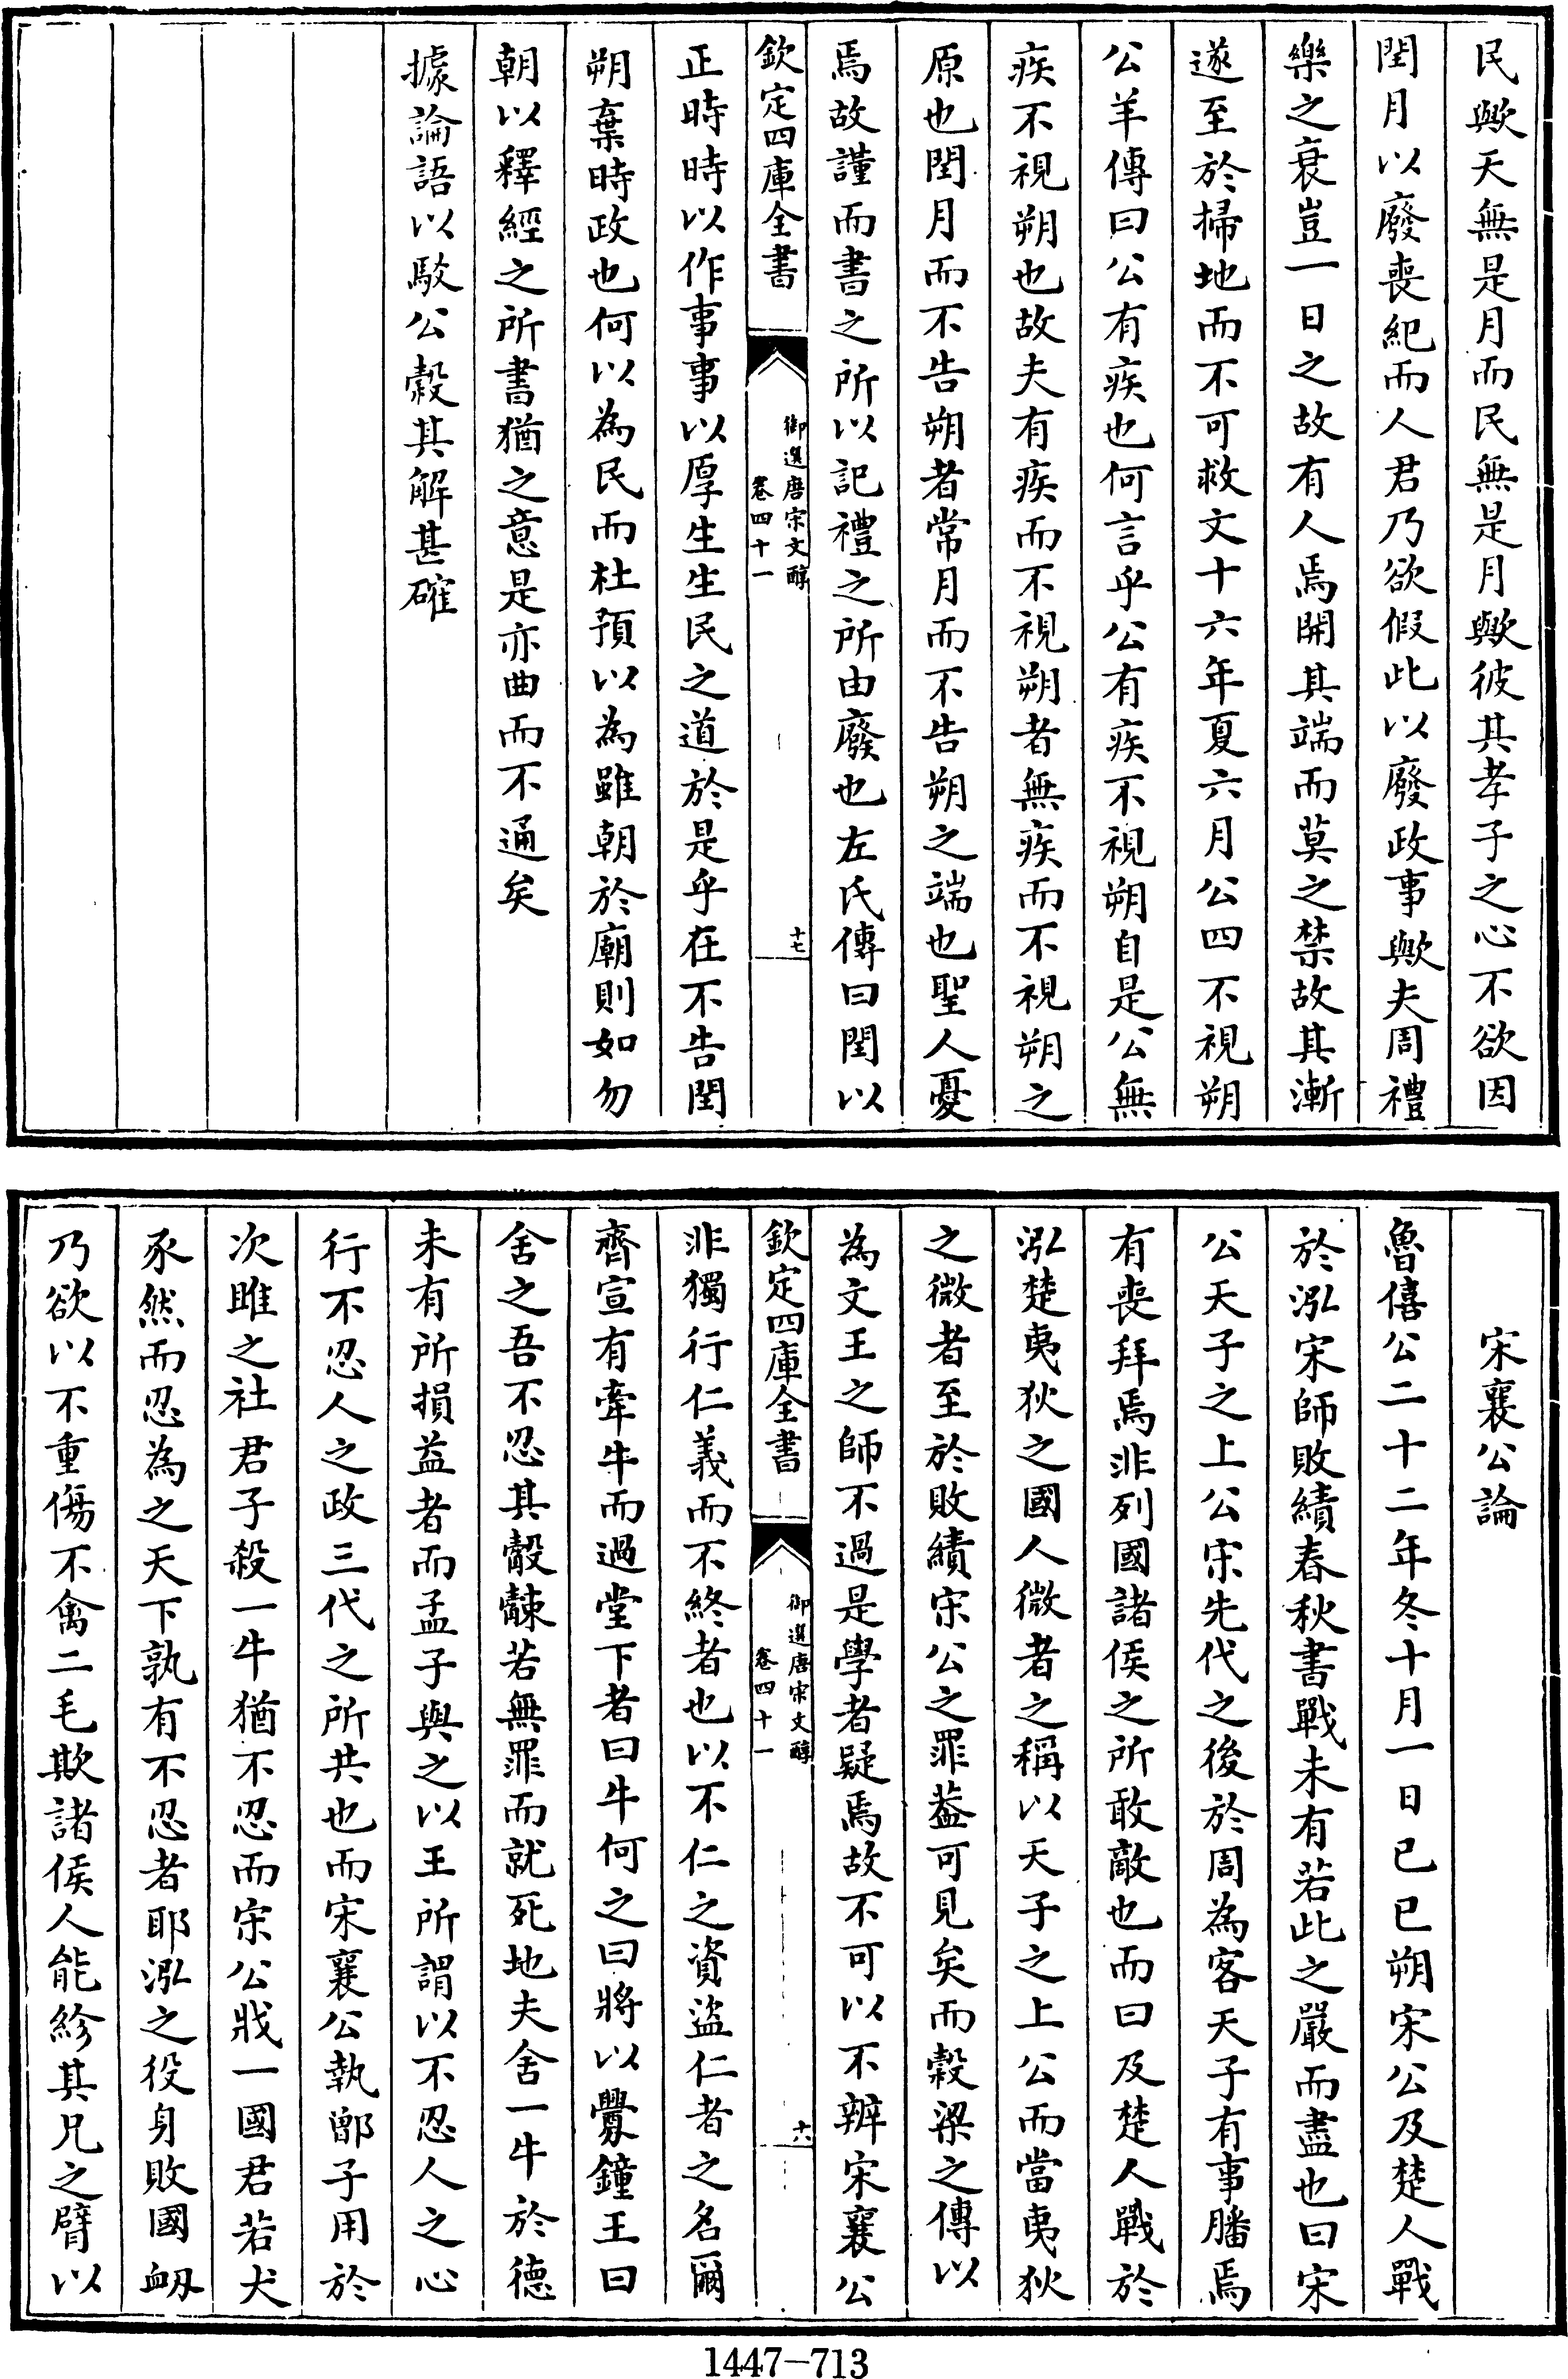 民歟天無是月而民無是月歟彼其孝子之心不欲因
閏月以廢喪紀而人君乃欲假此以廢政事歟夫周禮
樂之衰豈一日之故有人焉開其端而莫之禁故其漸
遂至於掃地而不可救文十六年夏六月公四不視朔
公羊傳曰公有疾也何言乎公有疾不視朔自是公無
疾不視朔也故夫有疾而不視朔者無疾而不視朔之
原也閏月而不告朔者常月而不告朔之端也聖人憂
焉故謹而書之所以記禮之所由廢也左氏傳曰閏以
欽定四庫全書
御選唐宋文醇
卷四十一
十七
正時時以作事事以厚生生民之道於是乎在不告閏
朔棄時政也何以為民而杜預以為雖朝於廟則如勿
朝以釋經之所書猶之意是亦曲而不通矣
據論語以駮公糓其解甚確
宋襄公論
魯僖公二十二年冬十月一日己巳朔宋公及楚人戰
於泓宋師敗績春秋書戰未有若此之嚴而盡也曰宋
公天子之上公宋先代之後於周為客天子有事膰焉
有喪拜焉非列國諸侯之所敢敵也而曰及楚人戰於
泓楚夷狄之國人微者之稱以天子之上公而當夷狄
之微者至於敗績宋公之罪葢可見矣而糓梁之傳以
為文王之師不過是學者疑焉故不可以不辨宋襄公
欽定四庫全書
御選唐宋文醇
卷四十一
十六
非獨行仁義而不終者也以不仁之資盜仁者之名爾
齊宣有牽牛而過堂下者曰牛何之曰將以釁鐘王曰
舍之吾不忍其觳觫若無罪而就死地夫舍一牛於德
未有所損益者而孟子與之以王所謂以不忍人之心
行不忍人之政三代之所共也而宋襄公執鄫子用於
次雎之社君子殺一牛猶不忍而宋公戕一國君若犬
豕然而忍為之天下孰有不忍者耶泓之役身敗國衂
乃欲以不重傷不禽二毛欺諸侯人能紾其兄之臂以
1447-713